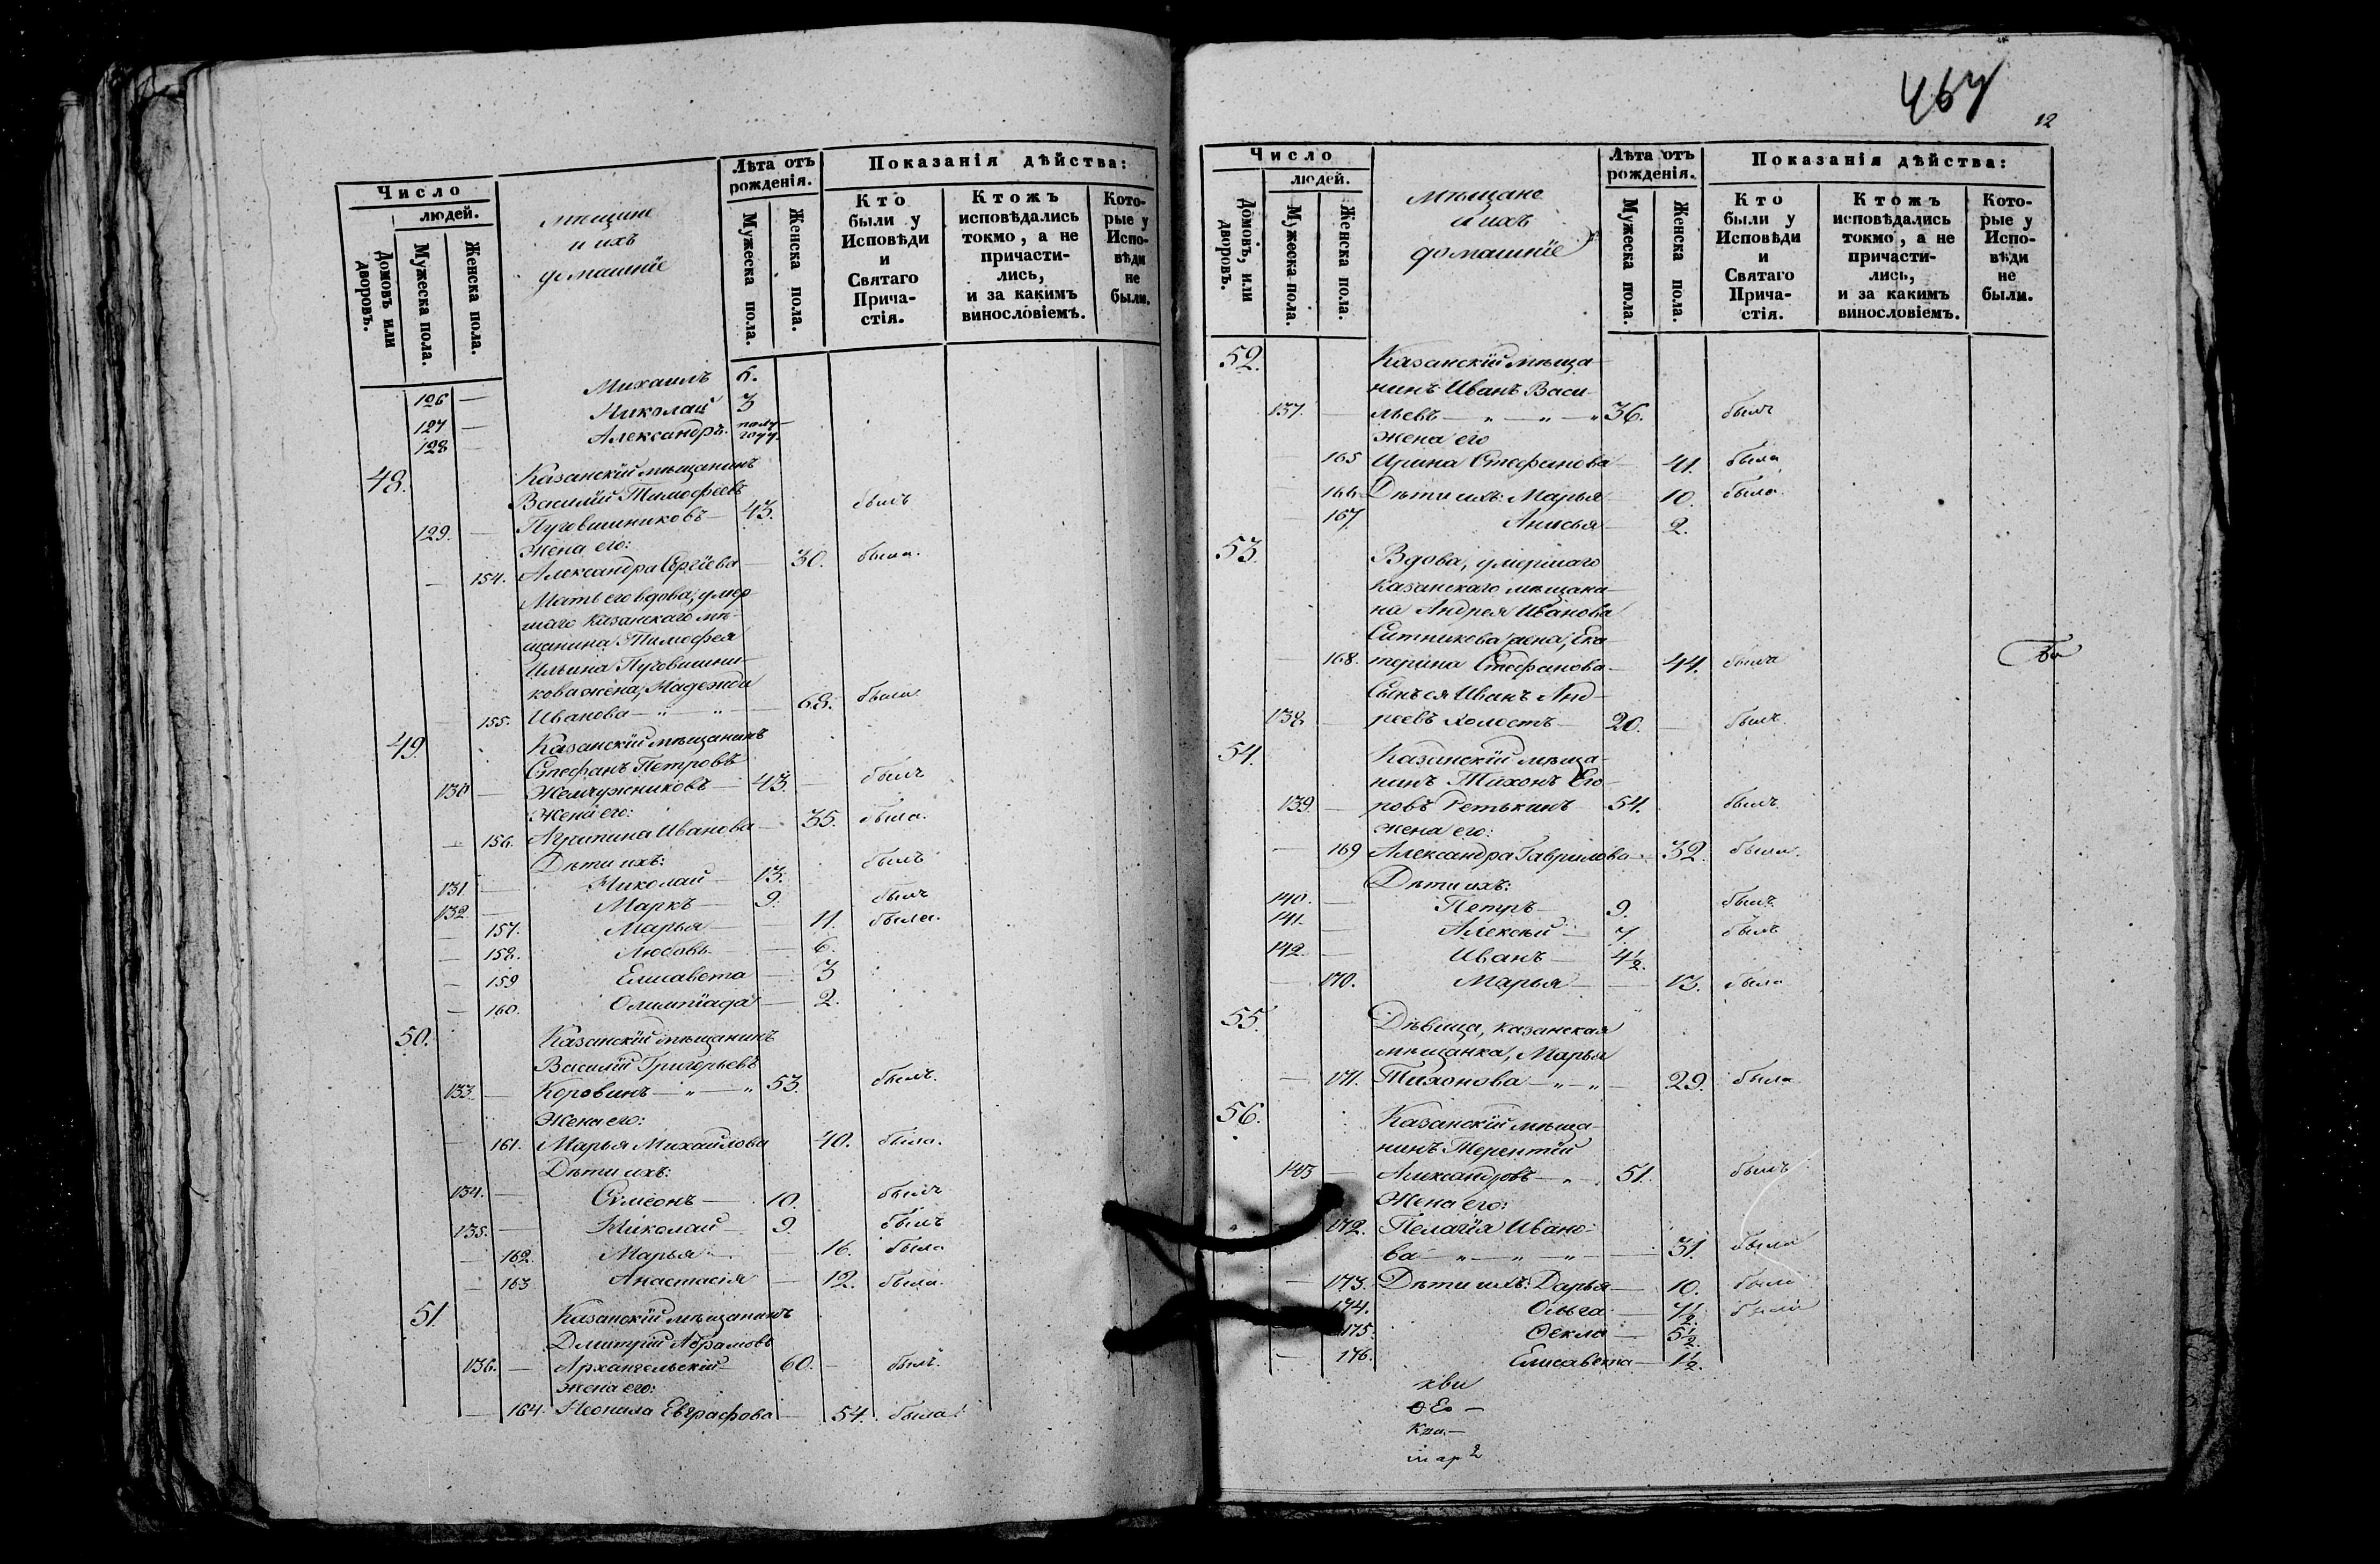 Число
людей.
Домовъ или дворовъ.
Мужеска пола.
Женска пола.
мѣщане
и ихъ
домашніе
Лѣта отъ рожденія.
Мужеска пола.
Женска пола.
Показанія дѣйства:
Кто были у Исповѣди и Святаго Причастія.
Ктожъ исповѣдались токмо, а не причастились, и за какимъ винословіемъ.
Которые у Исповѣди не были.
126 — Михаилъ 6.
127 — Николай 3
128 — Александръ полугоду.
48. Казанскій мѣщанинъ
Василій Тимофеевъ
129. — Пуговишниковъ — 43. былъ
Жена его:
— 154. Александра Сергіева — 30. была.
Мать его вдова, умер
шаго Казанскаго мѣ-
щанина Тимофея
Ильина Пуговишни-
кова жена, Надежда
— 155. Иванова — „ — „ — 68. была
49. Казанскій мѣщанинъ
Стефанъ Петровъ
130 — Жемчужниковъ — 43. — былъ
Жена его:
— 156. Агрипина Иванова — 35. была.
Дѣти ихъ:
131. — Николай — 13. былъ
132 — Маркъ — 9. былъ
— 157. Марья — 11. была.
— 158. Любовь — 6.
— 159 Елисавета — 3
— 160. Олимпіада — 2.
50. Казанскій мѣщанинъ
Василій Григорьевъ
133. — Коровинъ — „ — „ 53. былъ.
Жена его:
— 161. Марья Михайлова 40. была.
Дѣти ихъ:
134. — Сѵмеонъ — 10. былъ
135. — Николай — 9. былъ
— 162. Марья — 16. была
— 163 Анастасія — 12. была.
51. Казанскій мѣщанинъ
Дмитрій Абрамовъ
136. — Архангельскій — 60. — былъ.
жена его:
— 164. Неонила Евграфова — 54. была.
467
12
Число
людей.
Домовъ, или дворовъ.
Мужеска пола.
Женска пола.
мѣщане
и ихъ
домашніе
Лѣта отъ рожденія.
Мужеска пола.
Женска пола.
Показанія дѣйства:
Кто были у Исповѣди и Святаго Причастія.
Ктожъ исповѣдались токмо, а не причастились, и за какимъ винословіемъ.
Которые у Исповѣди не были.
52. Казанскій мѣща-
нинъ Иванъ Васи-
137. льевъ — „ — „ — „ 36. былъ
жена его
— 165 Ирина Стефанова — 41. была
— 166. Дѣти ихъ: Марья — 10. была.
— 167. Анисья — 2.
53. Вдова, умершаго
Казанскаго мѣщани-
на Андрея Иванова
Ситникова жена, Ека-
— 168. терина Стефанова — 44. была
Сынъ ея Иванъ Анд-
138 — реевъ холостъ — 20. — былъ.
54. Казанскій мѣща-
нинъ Тихонъ Его-
139. — ровъ Ретькинъ — 54. былъ
жена его:
— 169 Александра Гаврилова — 32. была.
Дѣти ихъ:
140. — Петръ — 9. былъ
141. — Алексѣй — 7 былъ
142. — Иванъ — 4½.
— 170. Марья — 13. была
55. Дѣвица, казанская
мѣщанка, Марья
— 171. Тихонова — „ — „ — 29. была
56. Казанскій мѣща-
нинъ Терентій
143 — Александровъ — „ 51. былъ
Жена его:
— 172. Пелагія Ивано-
ва — „ — „ — „ — 31. была
— 173. Дѣти ихъ: Дарья — 10. была
174. Ольга — 7½. была
175. Ѳекла — 5½.
— 176. Елисавета — 1½.